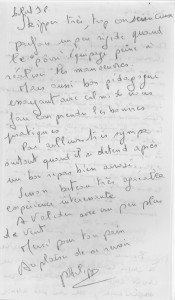 Juillet 98
Skipper très, trop consciencieux
parfois un peu rigide quand
l'espèce d'équipage peine à
réaliser les manoeuvres
Mais aussi bon pédagogue
essayant avec calme de nous
faire comprendre les bonnes
pratiques
Par ailleurs très sympa
surtout quand il se détend après
un bon repas bien arrosé.
Sinon bateau très agréable
expérience intéressante
A valider avec un peu plus
de vent.
Merci pour ton pain
Au plaisir de se revoir
Philippe